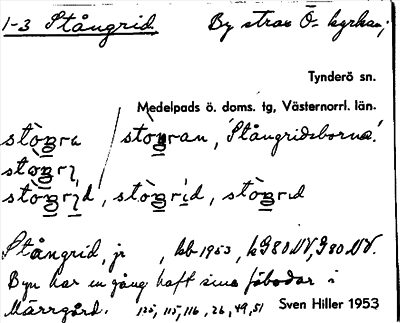 1-3 Stångrid. By strax Ö. kyrkan;
Tynderö sn.
Medelpads ö. doms. tg, Västernorrl. län.
stòŋra / stòŋran, 'Stångridsborna'.
stòŋri
stòŋrid, stòŋrid, stòŋrid
Stångrid, jr , kb 1953, kG80NV, G80NV.
Byn har en gång haft sina fäbodar i
Märrgård. 115, 116, 26, 49, 51 Sven Hiller 1953